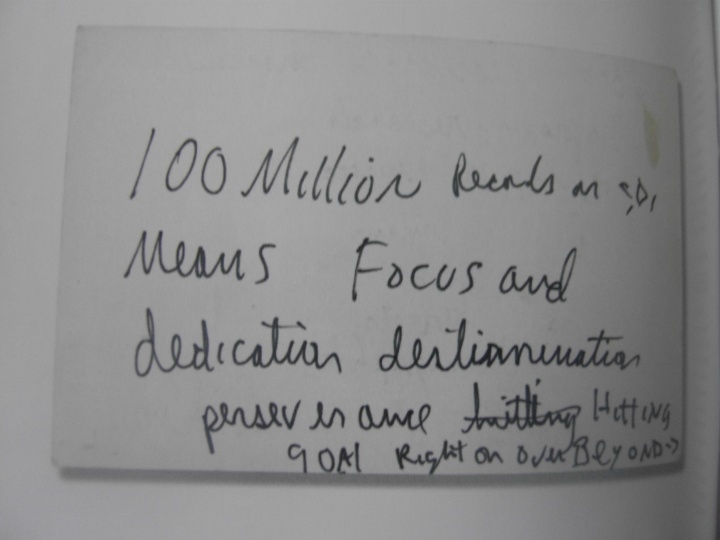 100 Million Records on
Means Focus and
dedication
perserverance hitting HittiNG
GOAl Right on over BEYOND